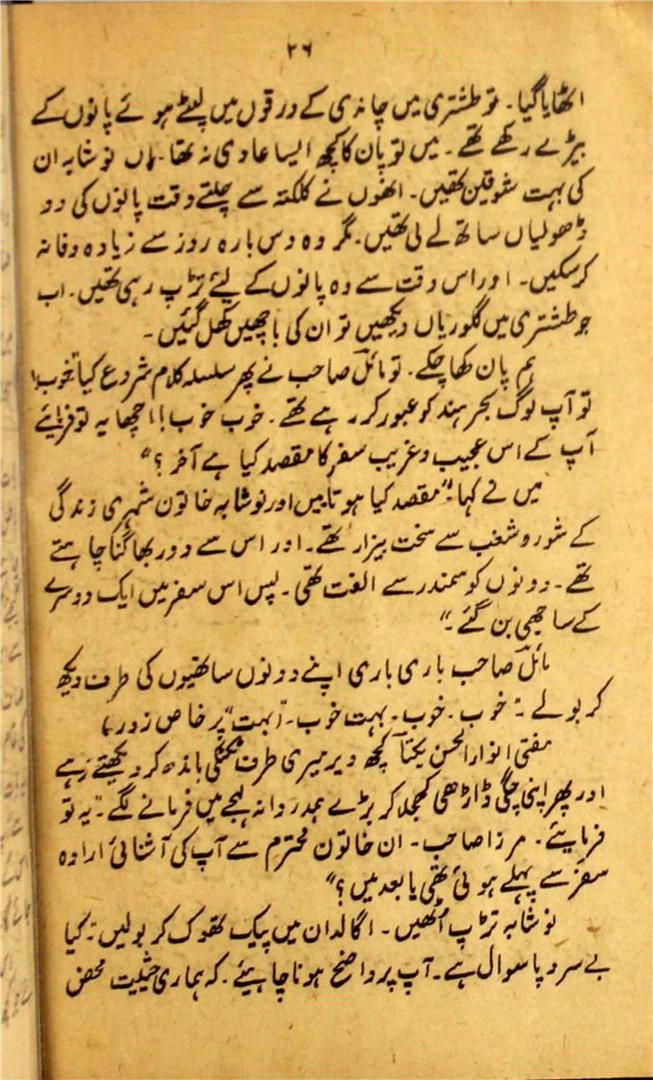 ۲۶
اٹھایا گیا۔ تو طشتری میں چاندی کے ورقوں میں لپٹے ہوئے پانوں کے
بیڑے رکھے تھے۔ میں تو پان کا کچھ ایسا عادی نہ تھا۔ ہاں نوشابہ ان
کی بہت شوقین تھیں۔ انھوں نے کلکتہ سے چلتے وقت پانوں کی دو
ڈھولیاں ساتھ لے لی تھیں۔ مگر وہ دس بارہ روز سے زیادہ وفا نہ
کرسکیں۔ اور اس وقت سے وہ پانوں کے لیئے تڑپ رہی تھیں۔ اب
جو طشتری میں گلوریاں دیکھیں تو ان کی باچھیں کھل گئیں۔
ہم پان کھا چکے۔ تو مائل صاحب نے پھر سلسلہ کلام شروع کیا "خوب!
تو آپ لوگ بحر ہند کو عبور کر رہے تھے۔ خوب خوب!! اچھا یہ تو فرمائیے
آپ کے اس عجیب و غریب سفر کا مقصد کیا ہے آخر؟"
میں نے کہا: "مقصد کیا ہوتا میں اور نوشابہ خاتون شہری زندگی
کے شور و شغب سے سخت بیزار تھے۔ اور اس سے دور بھاگنا چاہتے
تھے۔ دونوں کو سمندر سے الفت تھی۔ پس اس سفر میں ایک دوسرے
کے ساجھی بن گئے۔"
مائل صاحب باری باری اپنے دونوں ساتھیوں کی طرف دیکھ
کر بولے: "خوب۔ خوب۔ بہت خوب۔" ("بہت" پر خاص زور)
مفتی انوار الحسن یکتا کچھ دیر میری طرف ٹکٹکی باندھ کر دیکھتے رہے
اور پھر اپنی چگی ڈاڑھی کھجلا کر بڑے ہمدردانہ لہجے میں فرمانے لگے۔ "یہ تو
فرمایئے۔ مرزا صاحب۔ ان خاتون محترم سے آپ کی آشنائی ارادہ
سفر سے پہلے ہوئی تھی یا بعد میں؟"
نوشابہ تڑپ اُٹھیں۔ اگالدان میں پیک تھوک کر بولیں۔ "کیا
بے سر و پا سوال ہے۔ آپ پر واضح ہونا چاہیئے۔ کہ ہماری حیثیت محض